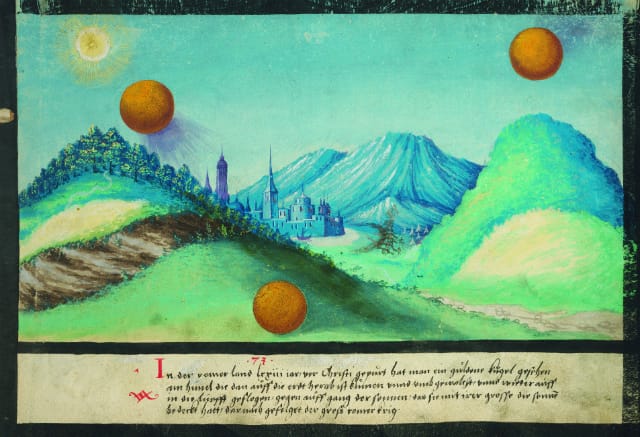 73.
In der romer land lxxiii iar vor Christi gepürt hat man ein güldene kugel gesehen
am himel die dan auff die erdt herab ist kumen vnnd vmb vnnd wider auff
in die geflogen gegen auff gang der sonnen das sie mit irer grosse die sonne
bedeckt hatt darnach gefolget der gross romer krig